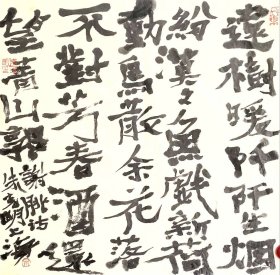 遠樹暖阡阡生烟
紛漠々魚戲新荷
動鳥散余花落
不對芳春酒還
望青山郭
謝朓詩
上海